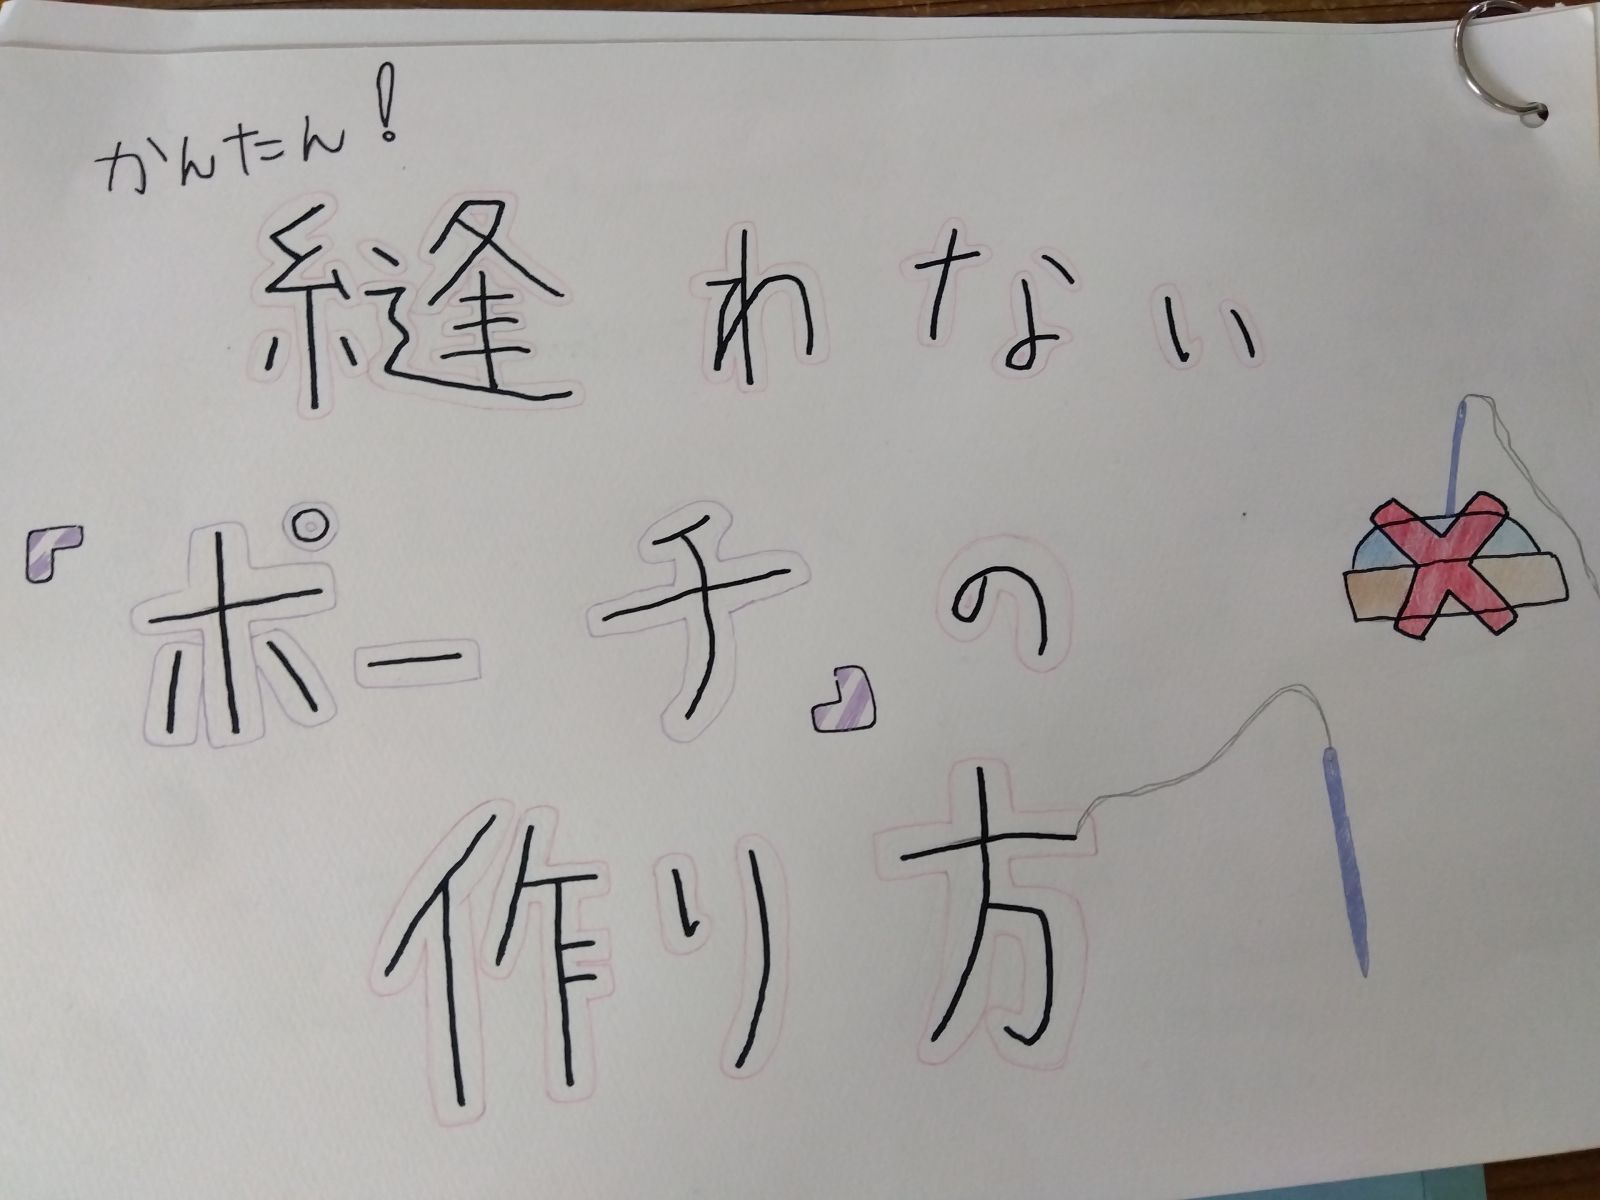 かんたん!
縫わない
『ポーチ』の
作り方